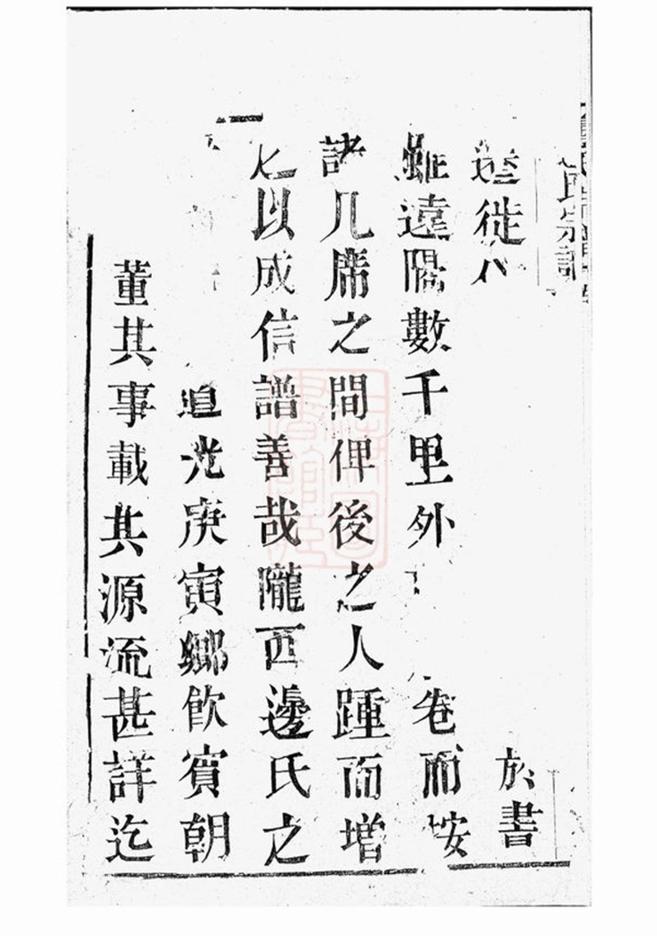 氏宗譜
遷徙 於書
雖遠隔數千里外 卷而按
諸几席之間俾後之人踵而增
之以成信譜善哉隴西邊氏之
道光庚寅鄉飲賓朝
董其事載其源流甚詳迄